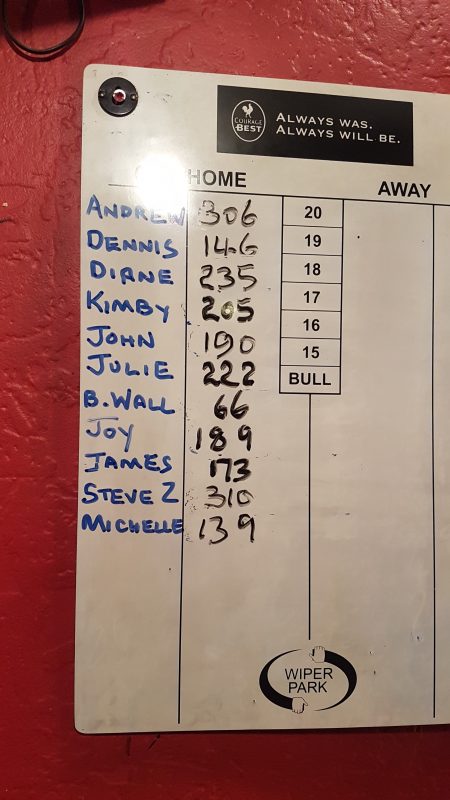 COURAGE
BEST
ALWAYS WAS.
ALWAYS WILL BE.
HOME
AWAY
ANDREW 306
DENNIS 146
DIANE 235
KIMBY 205
JOHN 190
JULIE 222
B.WALL 66
JOY 189
JAMES 173
STEVE Z 310
MICHELLE 139
20
19
18
17
16
15
BULL
WIPER
PARK